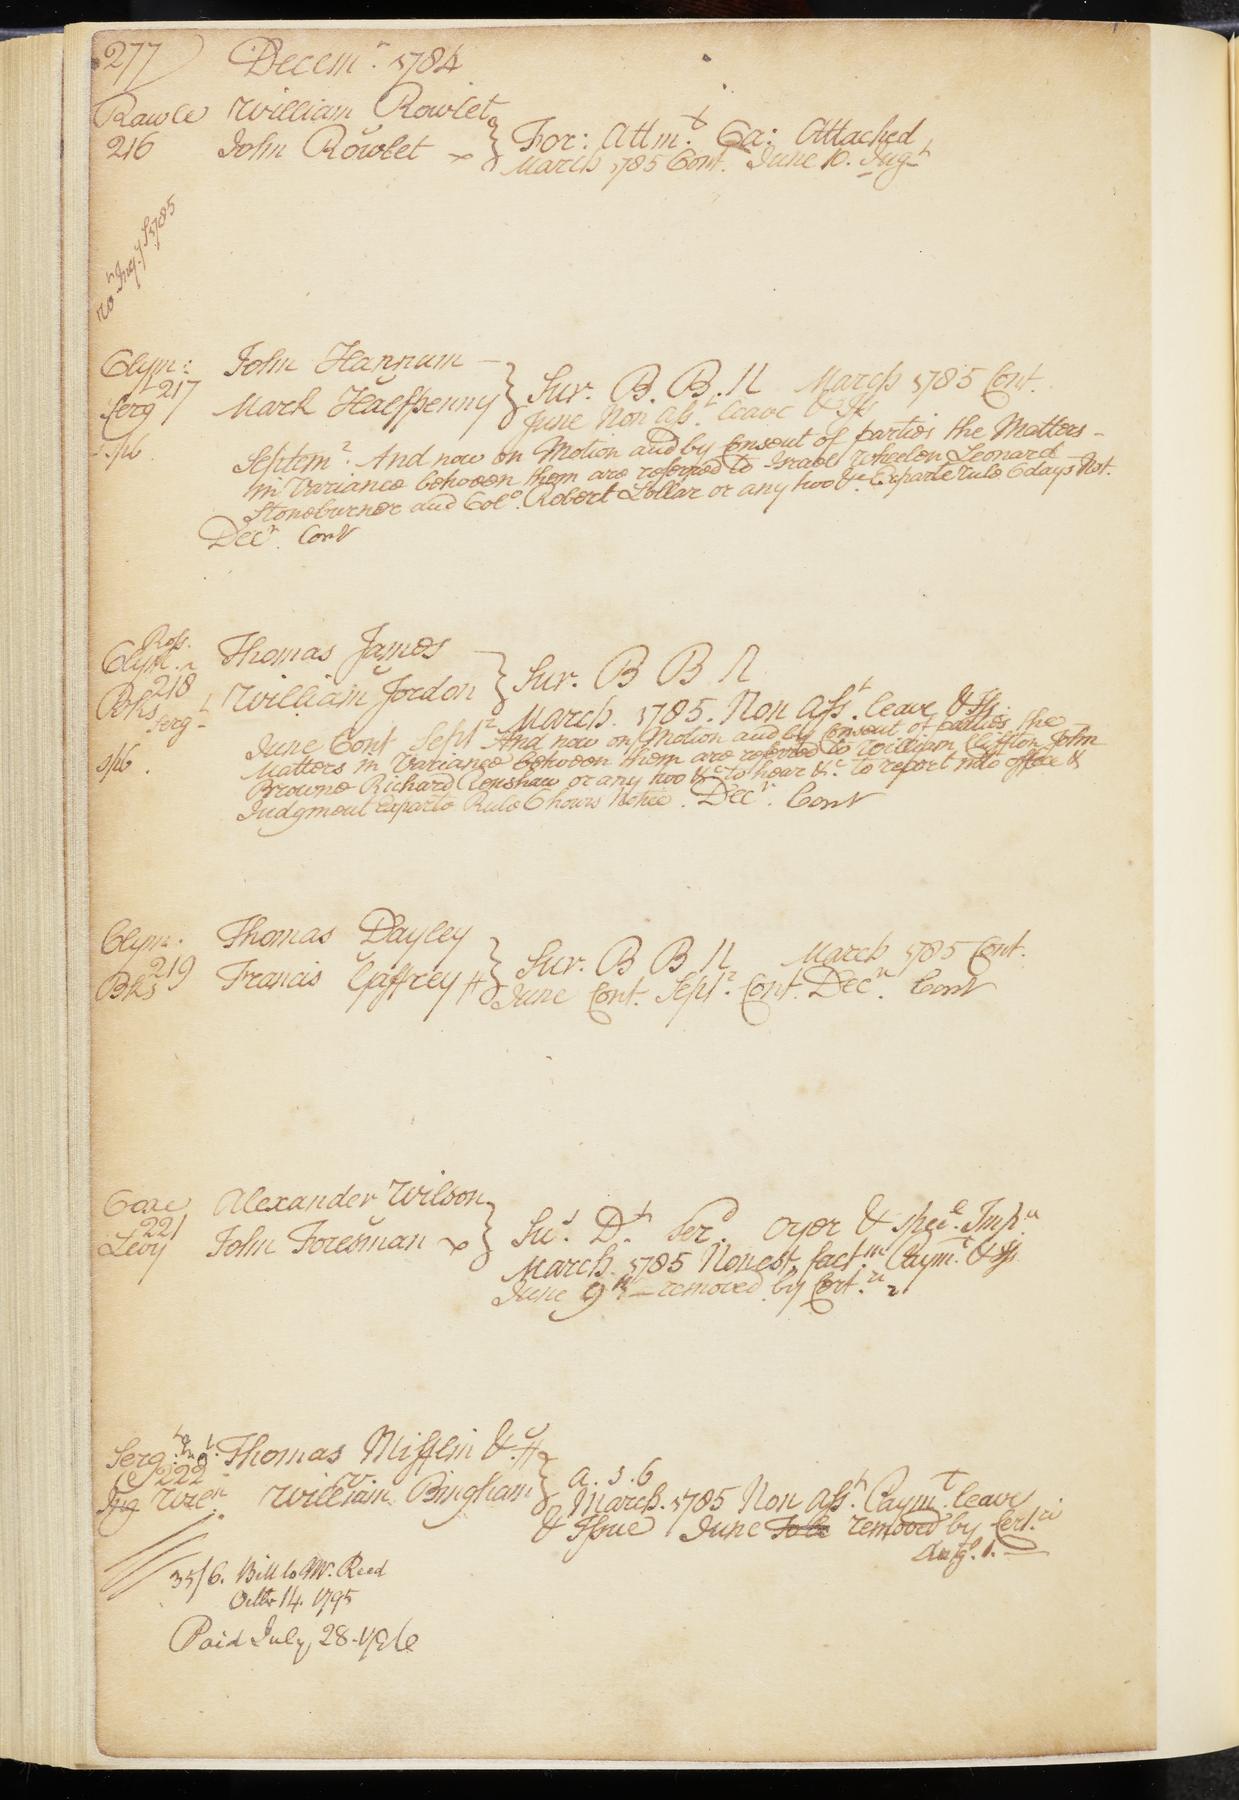 277 Decemr. 1784
Rawle William Rowlet
216 John Rowlet } For: Attmt. Ca: Attached
March 1785 Cont. June 10. Jugt
Jugt. S 1785
Clym: John Hannum
217 Serg Mark Halfpenny } Sur. B. B. N March 1785 Cont.
June Non ass.t leave & Iss
Septemr. And now on Motion and by Consent of parties the Matters
in Variance between them are referred to Israel Wheelen Leonard
Stoneburner and Colo. Robert Lollar or any two &c Exparte rule 6 days Not.
Decr. Cont
Ross.
Clym. Thomas James
218 William Jordon } Sur. B B N
Bks Serg March. 1785. Non Asst. leave & Iss.
June Cont Septr And now on Motion and by Consent of parties the
Matters in Variance between them are referred to William Cliffton John
Browne Richard Renshaw or any two &c to hear &c. to report into office &
Judgment Exparte Rule 6 hours Notice. Decr. Cont
Clym. Thomas Dayley
219 Bks Francis Gaffrey } Sur. B B N March 1785 Cont.
June Cont. Septr. Cont. Decr. Cont
Coxe Alexander Wilson
221 Levy John Foresman } Su.s D.t Serd. Oyer & spec.l Imp.
March. 1785 Non est factm Paymt. & Iss
June 9th removed by Cert.
Serg.t Thomas Mifflin &
222 William Bingham } a. s. 6
March. 1785 Non Asst. Paymt. leave
& Issue June To be removed by Cert.
Augt. 1.
35/6. Bill to Mr. Reed
Octbr 14. 1795
Paid July, 28. 1796